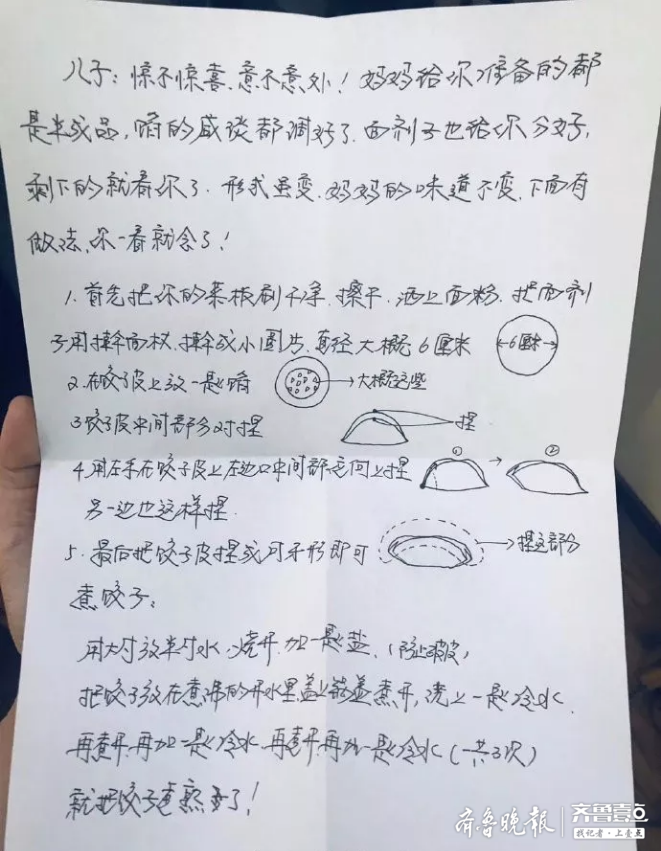 儿子：惊不惊喜、意不意外！妈妈给你准备的都
是半成品，馅的咸淡都调好了．面剂子也给你分好，
剩下的就看你了．形式虽变．妈妈的味道不变．下面有
做法，你一看就会了！
1. 首先把你的菜板刷干净．擦干．洒上面粉．把面剂
子用擀面杖．擀成小圆片．直径大概6厘米
6厘米
2. 在饺子皮上放一些馅
大概这些
3 饺子皮中间部分对捏
捏
4. 用左手在饺子皮上左边口中间部 向上捏
① → ②
另一边也这样捏．
5. 最后把饺子皮捏成月牙形即可
捏这部分
煮饺子：
用大勺放半勺水．烧开．加一些盐．（防止破皮，
把饺子放在煮沸的开水里盖上锅盖煮开，浇上一些冷水．
再煮开．再加一些冷水．再煮开．再加一些冷水（一共3次）
就把饺子煮熟了！
齐鲁晚报
齐鲁壹点
找记者·上壹点